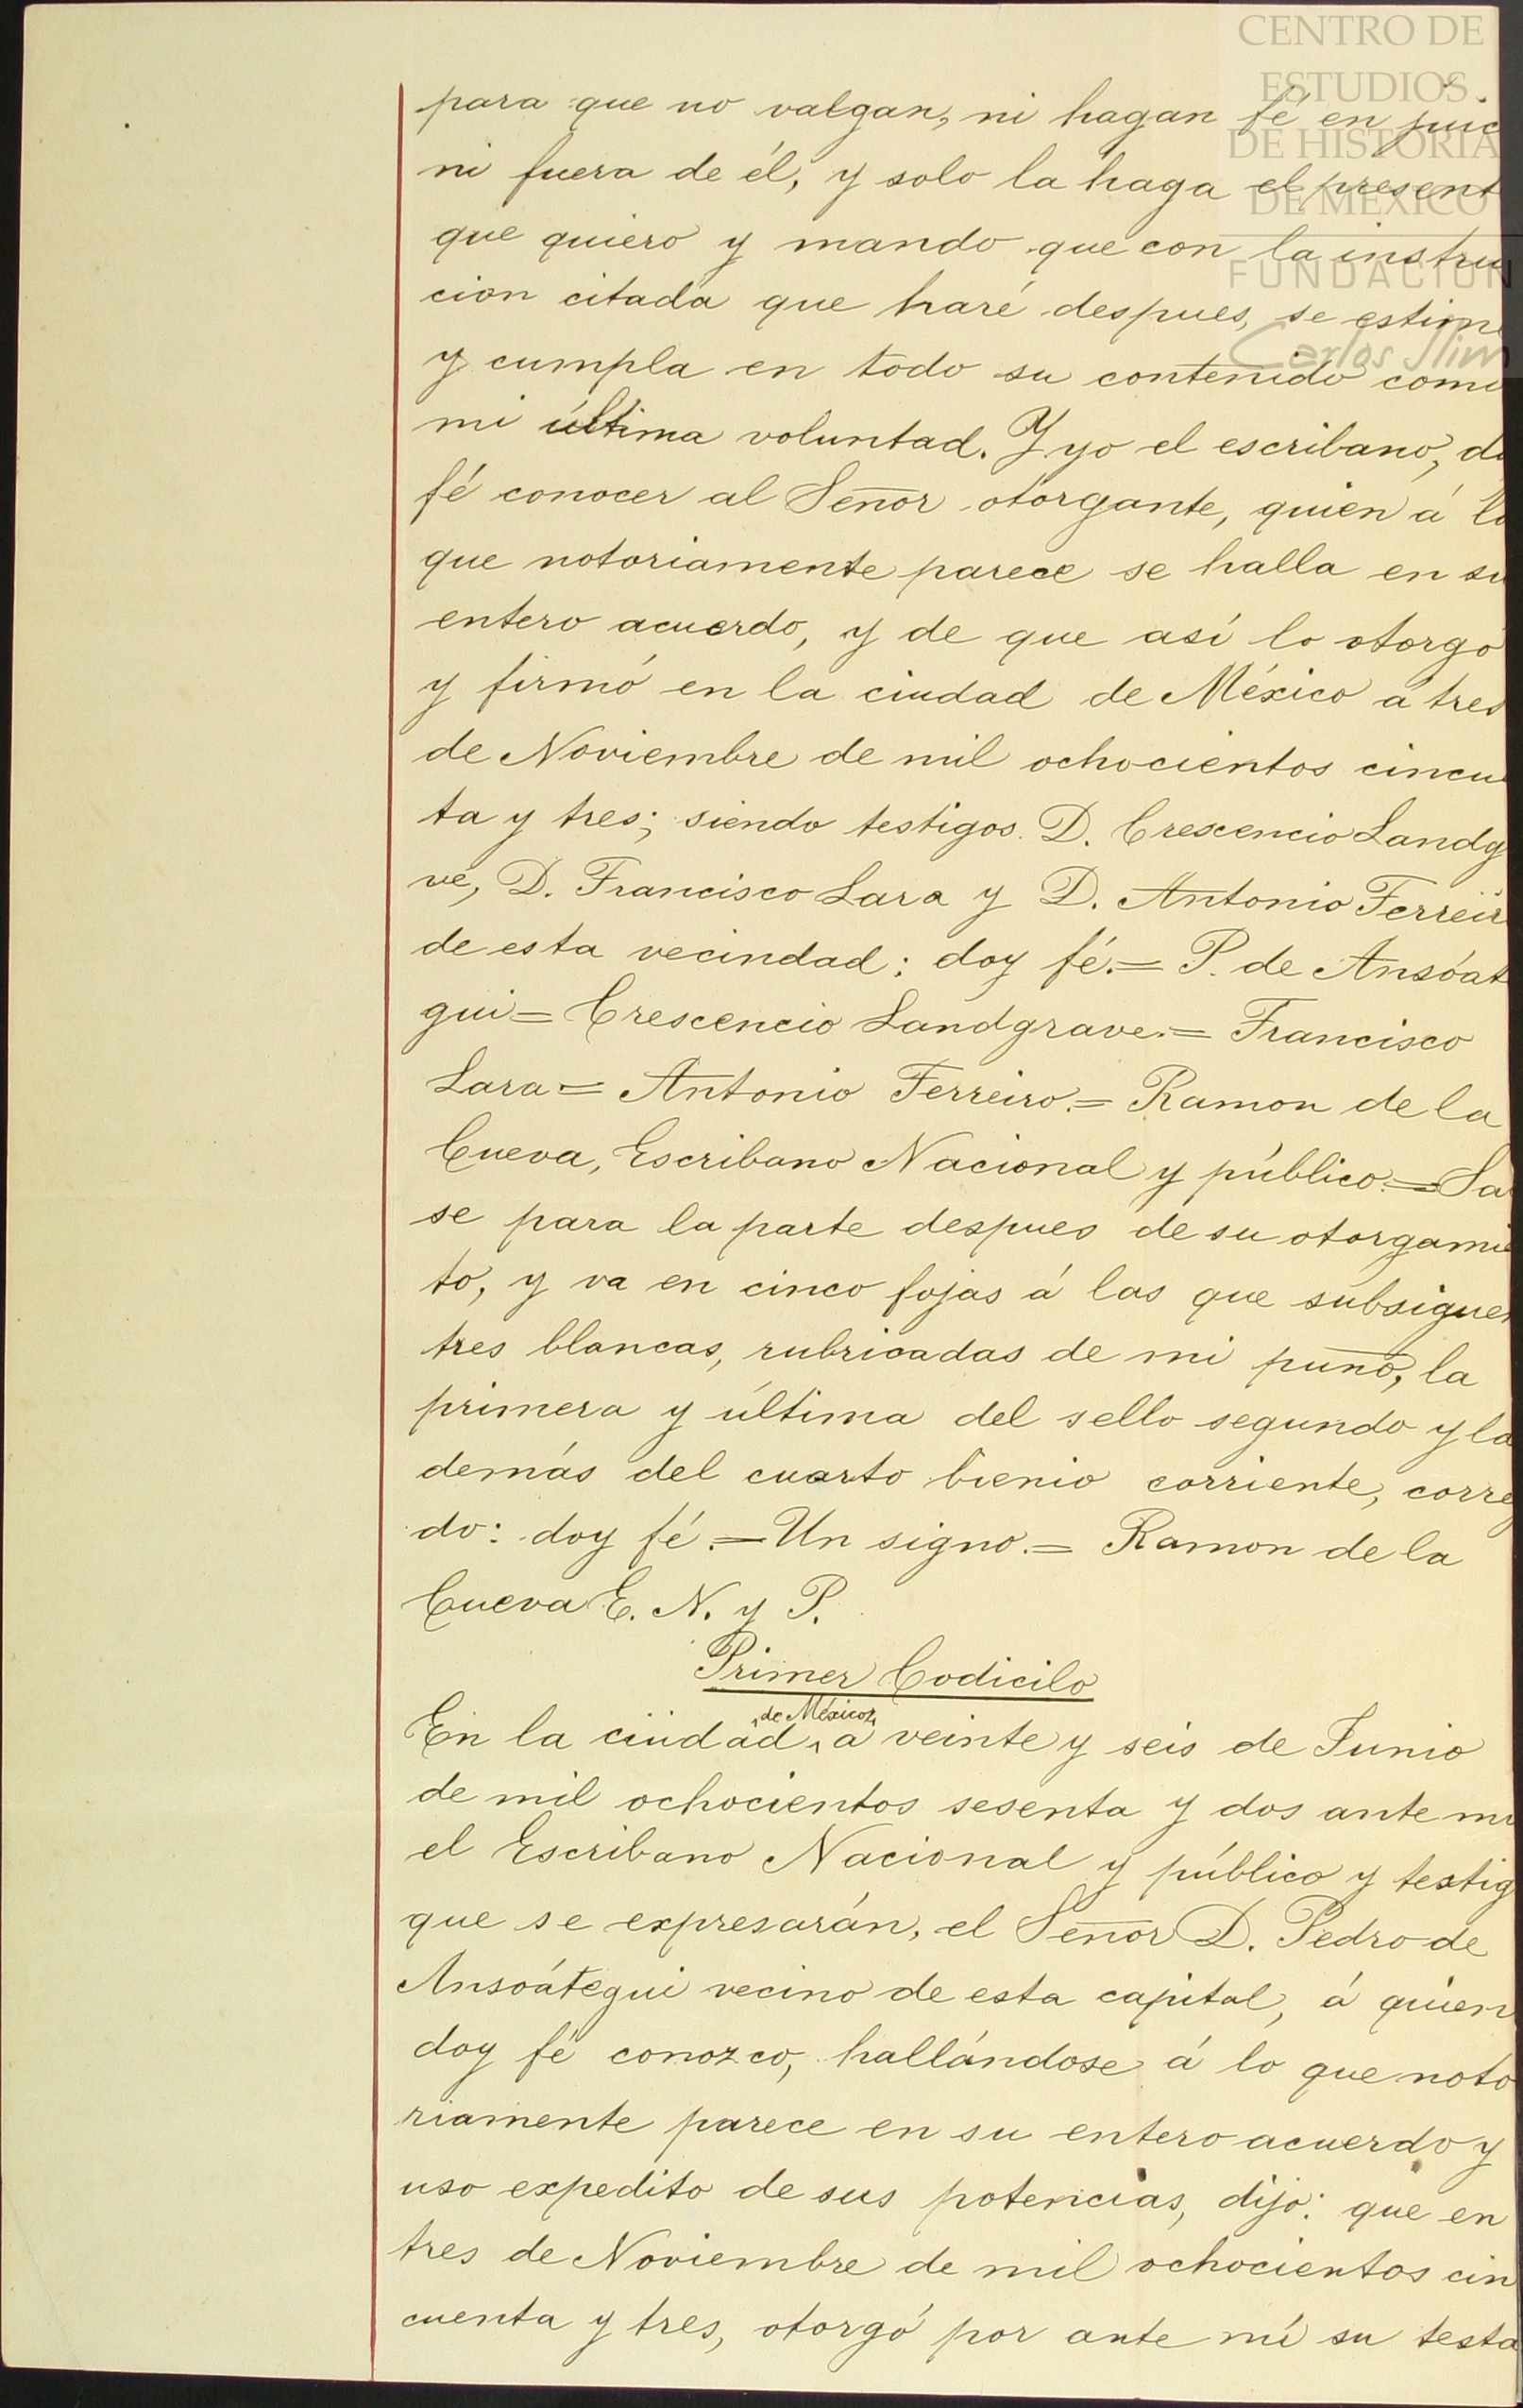 CENTRO DE
ESTUDIOS
DE HISTORIA
DE MÉXICO
FUNDACIÓN
Carlos Slim
para que no valgan, ni hagan fé en juic
ni fuera de él, y solo la haga el present
que quiero y mando que con la instru
cion citada que haré despues, se estime
y cumpla en todo su contenido como
mi última voluntad. Y yo el escribano, do
fé conocer al Señor otorgante, quien á lo
que notoriamente parece se halla en su
entero acuerdo, y de que así lo otorgó
y firmó en la ciudad de México a tres
de Noviembre de mil ochocientos cincu
ta y tres; siendo testigos D. Crescencio Landg
ve, D. Francisco Lara y D. Antonio Ferreir
de esta vecindad: doy fé.= P. de Ansóat
gui= Crescencio Landgrave.= Francisco
Lara= Antonio Ferreiro.= Ramon de la
Cueva, Escribano Nacional y público.= Sa
se para la parte despues de su otorgamie
to, y va en cinco fojas á las que subsiguen
tres blancas, rubricadas de mi puño, la
primera y última del sello segundo y la
demás del cuarto bienio corriente, correg
do: doy fé.= Un signo.= Ramon de la
Cueva E. N. y P.
Primer Codicilo
En la ciudad de México, a veinte y seis de Junio
de mil ochocientos sesenta y dos ante mi
el Escribano Nacional y público y testig
que se expresarán, el Señor D. Pedro de
Ansoátegui vecino de esta capital, á quien
doy fé conozco, hallándose á lo que noto
riamente parece en su entero acuerdo y
uso expedito de sus potencias, dijo: que en
tres de Noviembre de mil ochocientos cin
cuenta y tres, otorgó por ante mí su testa